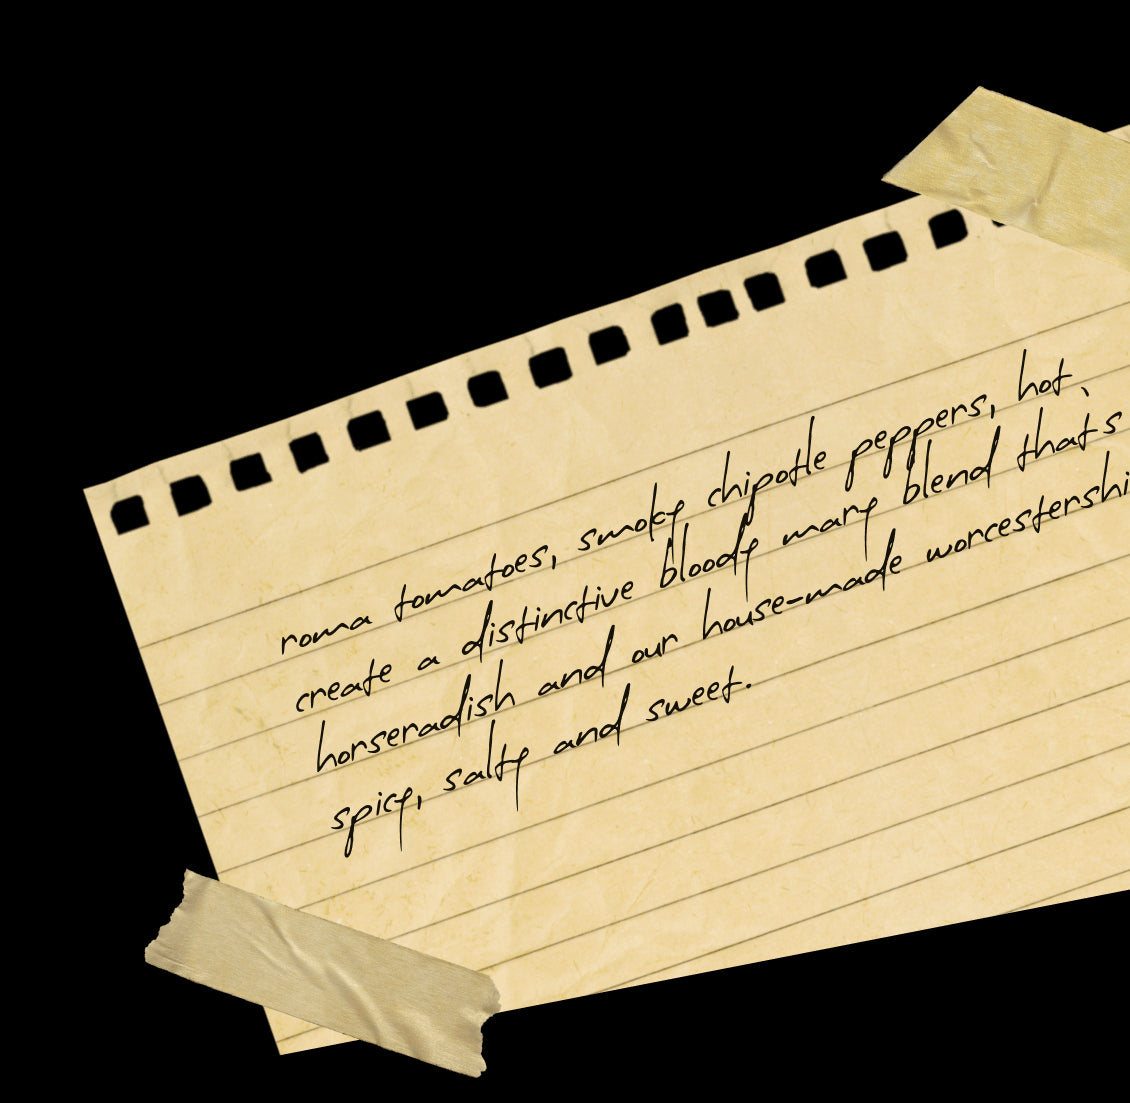 roma tomatoes, smoky chipotle peppers, hot,
create a distinctive bloody mary blend that's
horseradish and our house-made worcestershi
spicy, salty and sweet.